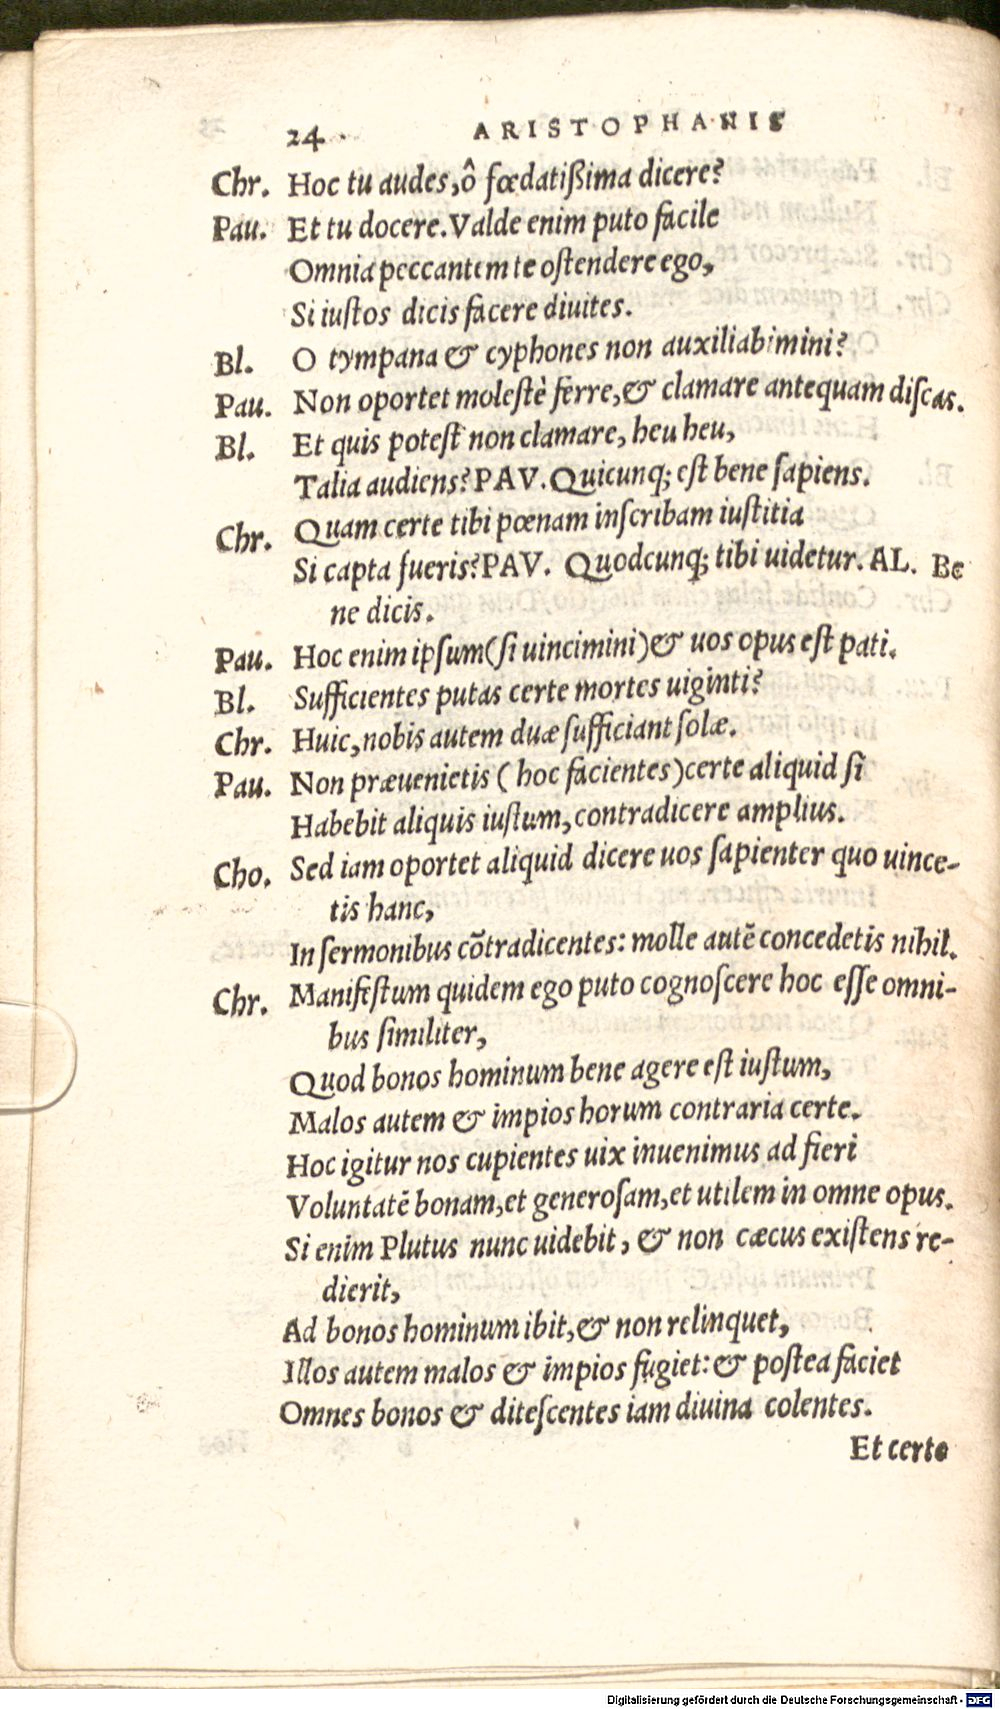 24 ARISTOPHANIS
Chr. Hoc tu audes, ô fœdatißima dicere?
Pau. Et tu docere. Valde enim puto facile
Omnia peccantem te oſtendere ego,
Si iuſtos dicis facere diuites.
Bl. O tympana & cyphones non auxiliabimini?
Pau. Non oportet moleſtè ferre, & clamare antequam diſcas.
Bl. Et quis poteſt non clamare, heu heu,
Talia audiens? PAV. Quicunq; eſt bene ſapiens.
Chr. Quam certe tibi pœnam inſcribam iuſtitia
Si capta fueris? PAV. Quodcunq; tibi uidetur. AL. Be
ne dicis.
Pau. Hoc enim ipſum (ſi uincimini) & uos opus eſt pati.
Bl. Sufficientes putas certe mortes uiginti?
Chr. Huic, nobis autem duæ ſufficiant ſolæ.
Pau. Non præuenietis ( hoc facientes) certe aliquid ſi
Habebit aliquis iuſtum, contradicere amplius.
Cho. Sed iam oportet aliquid dicere uos ſapienter quo uince-
tis hanc,
In ſermonibus cõtradicentes: molle autẽ concedetis nihil.
Chr. Manifeſtum quidem ego puto cognoſcere hoc eſſe omni-
bus ſimiliter,
Quod bonos hominum bene agere eſt iuſtum,
Malos autem & impios horum contraria certe.
Hoc igitur nos cupientes uix inuenimus ad fieri
Voluntatẽ bonam, et generoſam, et utilem in omne opus.
Si enim Plutus nunc uidebit, & non cæcus exiſtens re-
dierit,
Ad bonos hominum ibit, & non relinquet,
Illos autem malos & impios fugiet: & poſtea faciet
Omnes bonos & diteſcentes iam diuina colentes.
Et certe
Digitalisierung gefördert durch die Deutsche Forschungsgemeinschaft - DFG